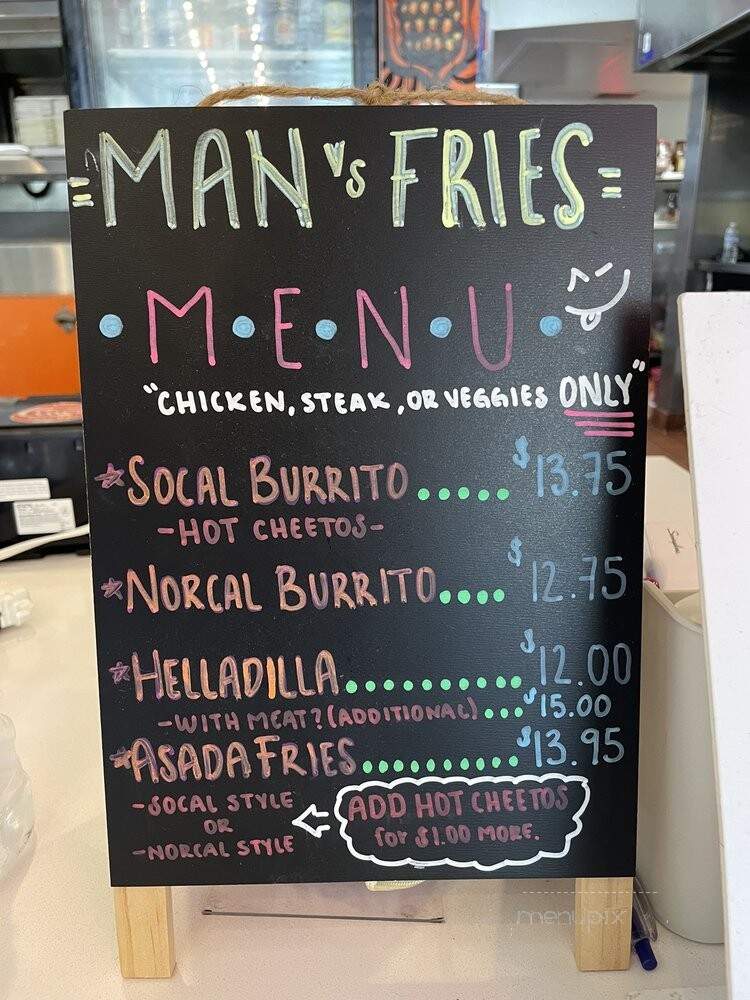 MAN VS FRIES
MENU
"CHICKEN, STEAK, OR VEGGIES ONLY"
SOCAL BURRITO..... $13.75
-HOT CHEETOS-
NORCAL BURRITO.... $12.75
HELLADILLA.......... $12.00
-WITH MEAT? (ADDITIONAL)... $15.00
ASADA FRIES.......... $13.95
-SOCAL STYLE
OR
-NORCAL STYLE
ADD HOT CHEETOS
for $1.00 MORE.
menupix